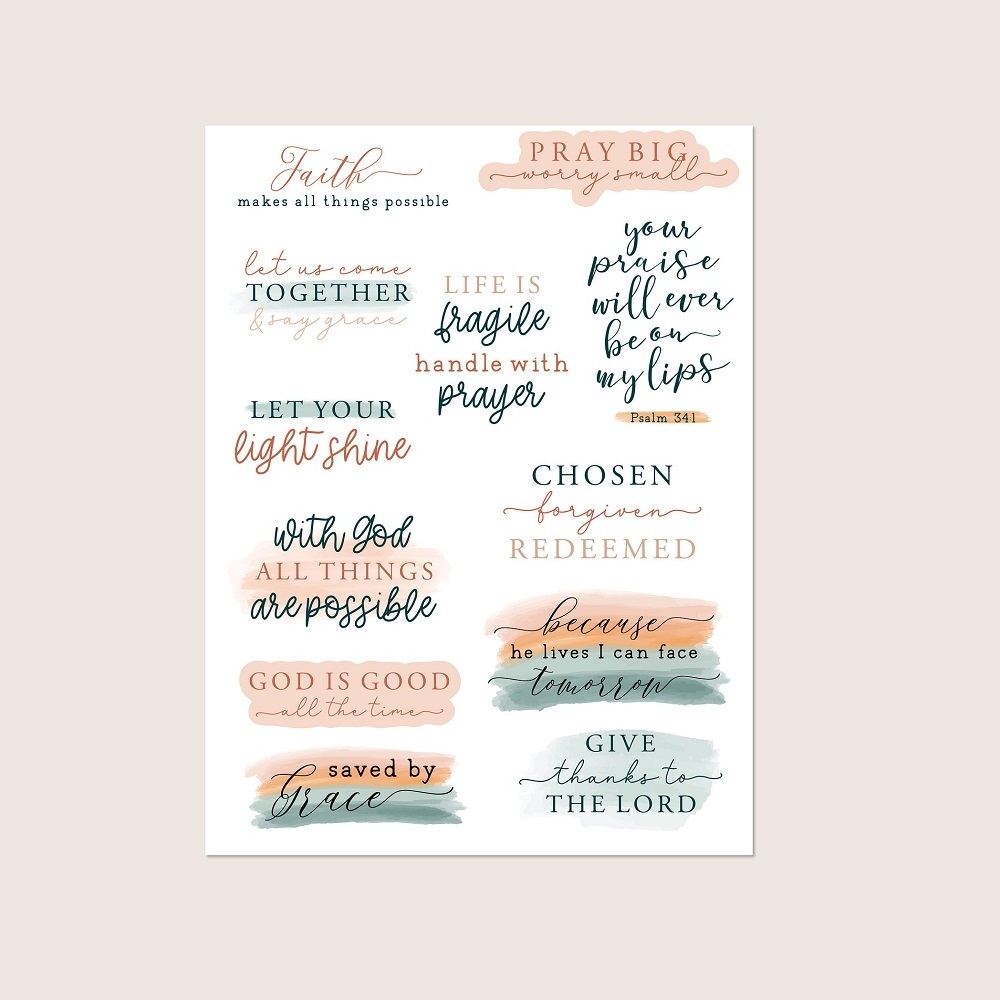 Faith
makes all things possible
PRAY BIG
worry small
let us come
TOGETHER
& say grace
LIFE IS
fragile
handle with
prayer
your
praise
will ever
be on
my lips
Psalm 34:1
LET YOUR
light shine
CHOSEN
forgiven
REDEEMED
with God
ALL THINGS
are possible
because
he lives I can face
tomorrow
GOD IS GOOD
all the time
saved by
Grace
GIVE
thanks to
THE LORD